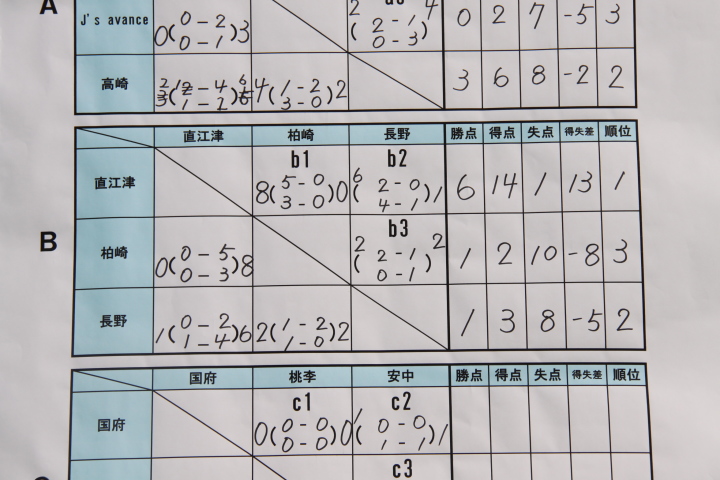 A
J's avance 0(0-2 0-1)3 2(2-1 0-3)4 0 2 7 -5 3
高崎 4(1-2 3-0)2 3 6 8 -2 2
直江津 柏崎 長野 勝点 得点 失点 得失差 順位
b1 b2
直江津 8(5-0 3-0)0 6(2-0 4-1)1 6 14 1 13 1
B
b3
柏崎 0(0-5 0-3)8 2(2-1 0-1)2 1 2 10 -8 3
長野 1(0-2 1-4)6 2(1-2 1-0)2 1 3 8 -5 2
国府 桃李 安中 勝点 得点 失点 得失差 順位
c1 c2
国府 0(0-0 0-0)0 1(0-0 1-1)1
c3